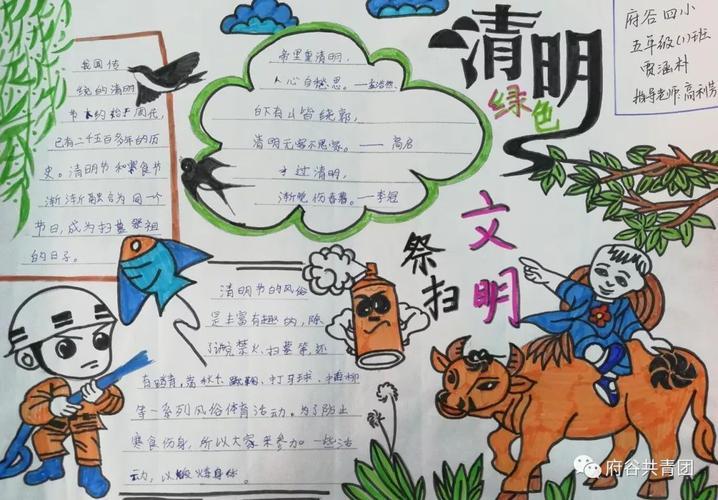 我国传
统的清明
节大约始于周代,
已有二千五百多年的历
史。清明节和寒食节
渐渐融合为同一个
节日,成为扫墓祭祖
的日子。
帝里重清明,
人心自愁思。——孟浩然
白下有山皆绕郭,
清明无客不思家。——高启
才过清明,
渐觉伤春暮。——李冠
清明
绿色
府谷四小
五年级(1)班
贾涵村
指导老师:高利芳
文明
祭扫
清明节的风俗
是丰富有趣的,除
了讲究禁火、扫墓等还
有踏青、荡秋千、蹴鞠、打马球、插柳
等一系列风俗体育活动。为了防止
寒食伤身,所以大家来参加一些活
动,以锻炼身体。
府谷共青团